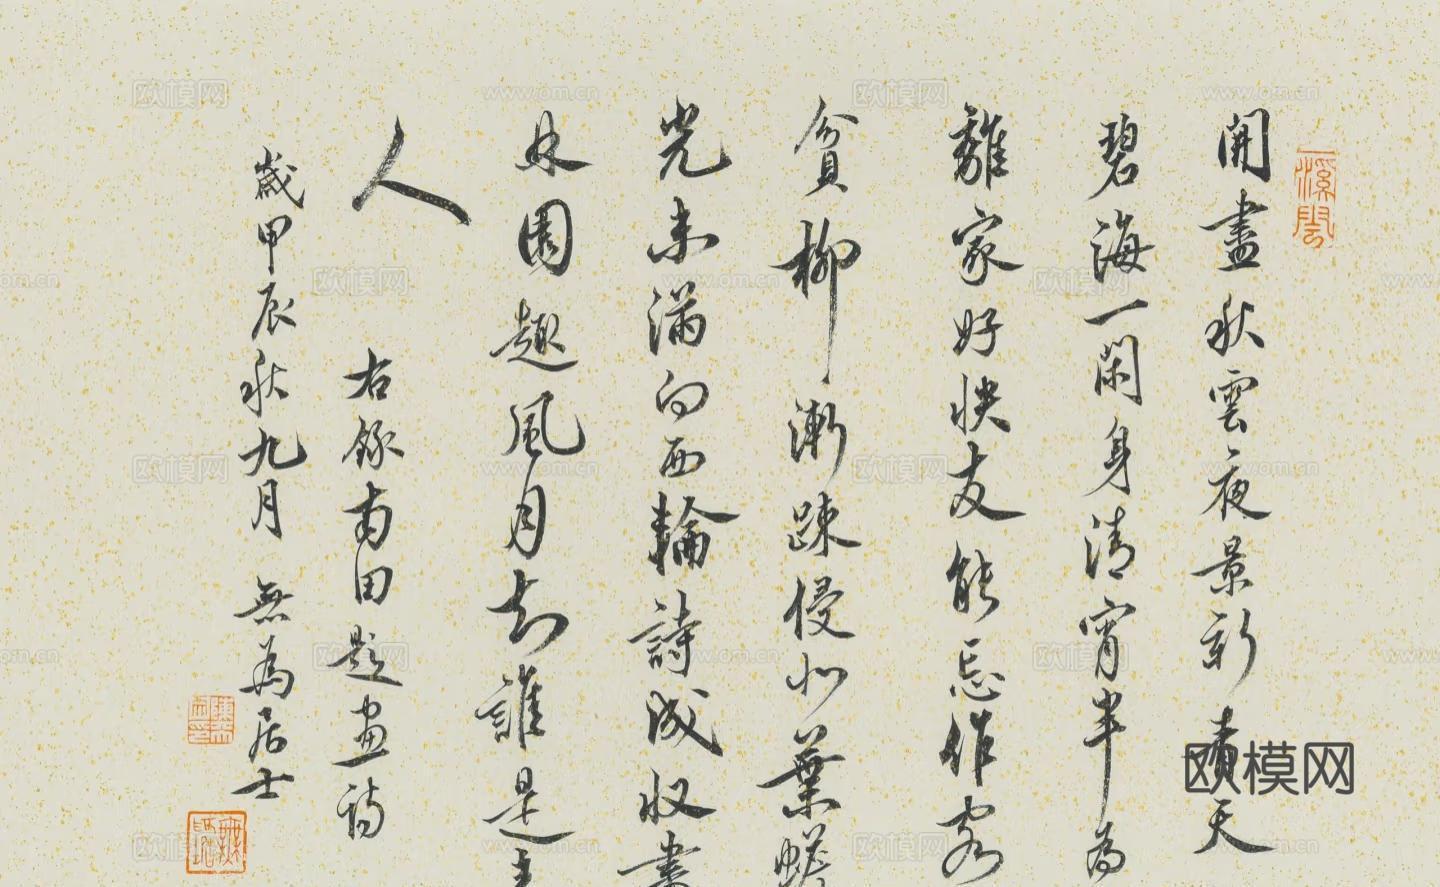 開盡秋雲夜景新青天
碧海一閑身清宵半為
離家好快友能忘作客
貧柳漸踈侵水葉蟾
光未滿向西輪詩成収畫
林園趣風月知誰是主
人
右錄南田題畫詩
歲甲辰秋九月 無為居士
欧模网
www.om.cn